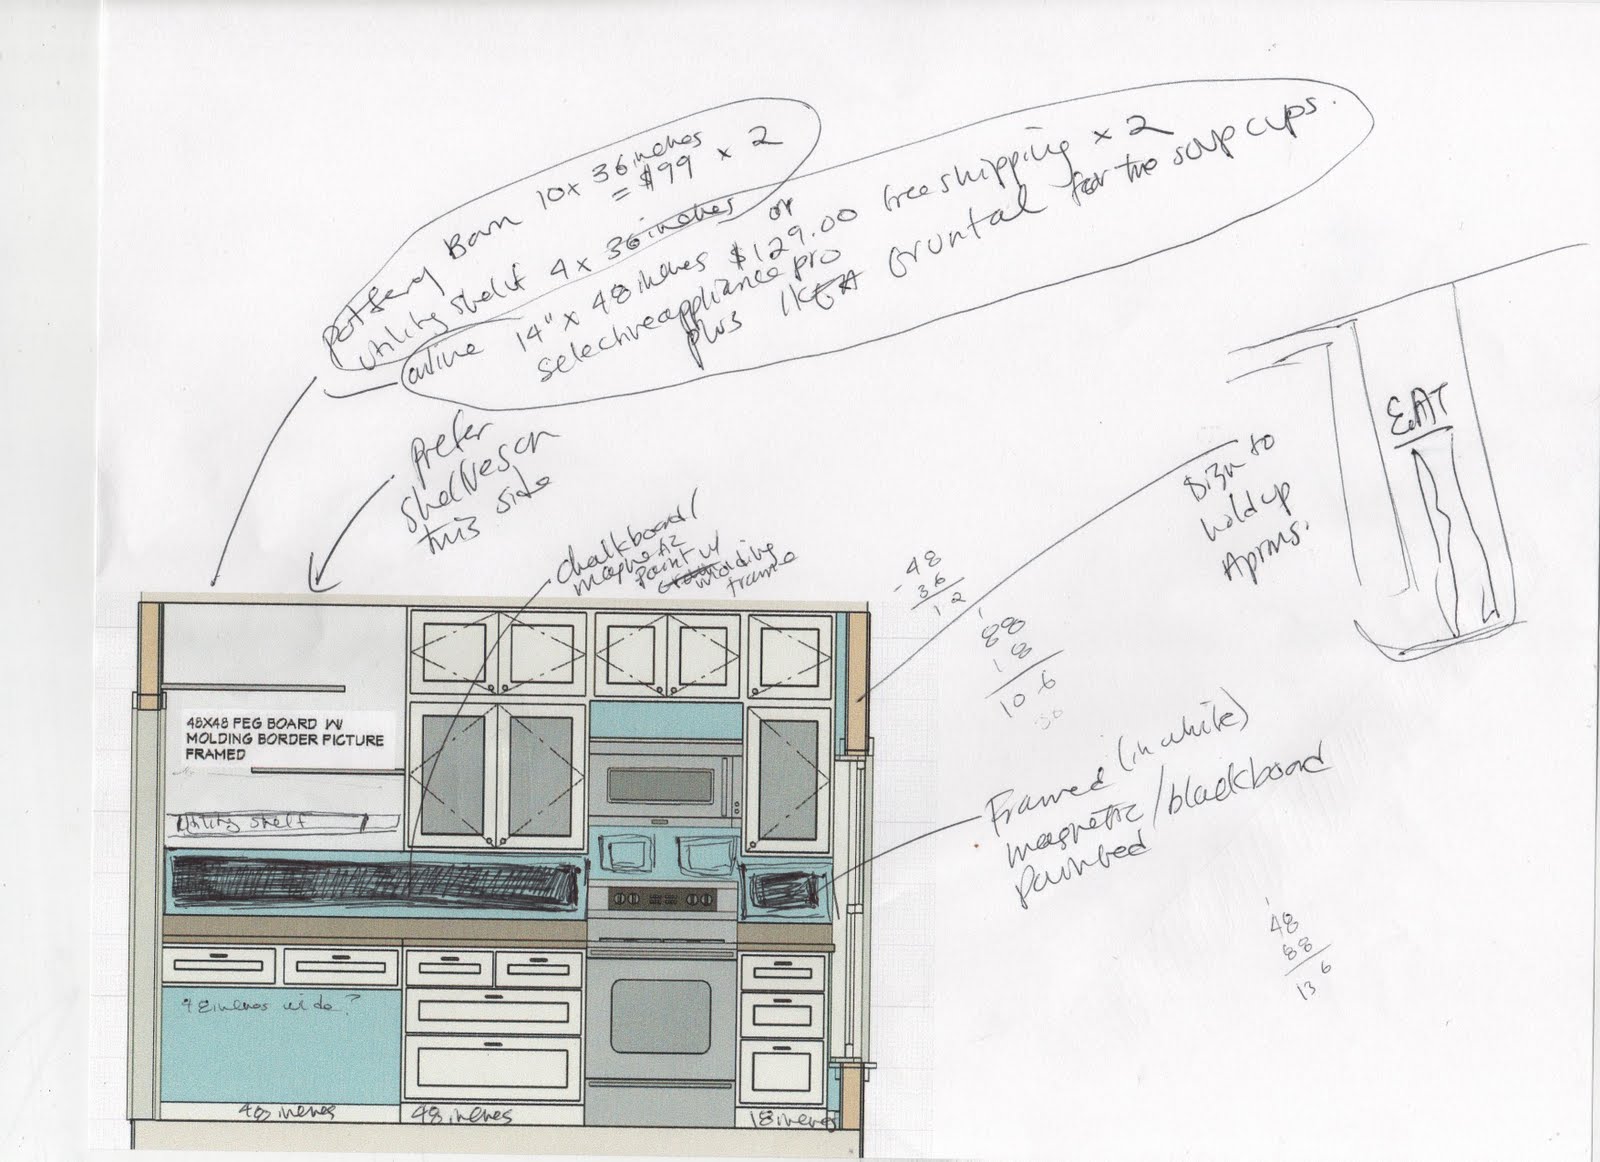 Pottery Barn 10 x 36 inches
= $99 x 2
utility shelf 4 x 36 inches or
online 14" x 48 inches $129.00 free shipping x 2
selectiveappliancepro
plus IKEA Gruntal for the soup cups.
prefer
shelves on
this side
chalkboard/
magnetic
paint w/
molding
frame
EAT
sign to
hold up
Aprons.
- 48
36
12
1
88
18
106
Framed (in white)
magnetic/blackboard
painted
1
48
88
136
48X48 PEG BOARD W/
MOLDING BORDER PICTURE
FRAMED
Utility shelf
48 inches wide?
48 inches
48 inches
18 inches